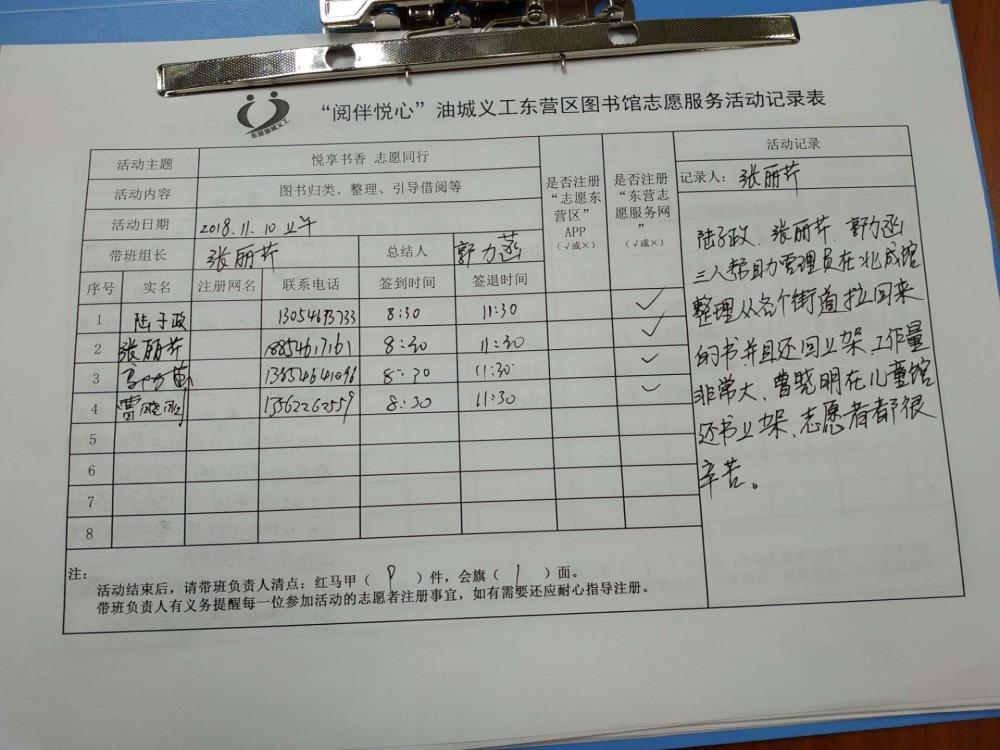 东营油城义工
“阅伴悦心”油城义工东营区图书馆志愿服务活动记录表
活动主题 悦享书香 志愿同行
活动内容 图书归类、整理、引导借阅等
活动日期 2018.11.10 上午
带班组长 张丽芹 总结人 郭力菡
是否注册“志愿东营区”APP（√或×）
是否注册“东营志愿服务网”（√或×）
序号 实名 注册网名 联系电话 签到时间 签退时间
1 陆子政 13054693733 8:30 11:30 ✓
2 张丽芹 18854617161 8:30 11:30 ✓
3 8:30 11:30 ✓
4 曹晓明 13562262559 8:30 11:30 ✓
5
6
7
8
注：
活动结束后，请带班负责人清点：红马甲（ 9 ）件，会旗（ 1 ）面。
带班负责人有义务提醒每一位参加活动的志愿者注册事宜，如有需要还应耐心指导注册。
活动记录
记录人：张丽芹
陆子政、张丽芹、郭力菡
三人帮助管理员在北成馆
整理从各个街道拉回来
的书并且还回上架、工作量
非常大、曹晓明在儿童馆
还书上架、志愿者都很
辛苦。